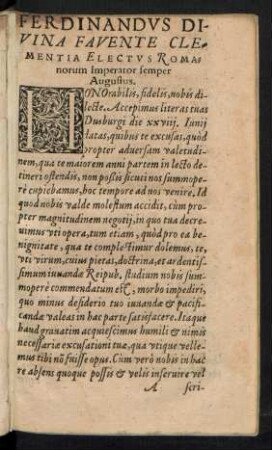 FERDINANDVS DI-
VINA FAVENTE CLE-
MENTIA ELECTVS ROMA-
norum Imperator semper
Augustus.
HONOrabilis, fidelis, nobis di-
lecte. Accepimus literas tuas
Dusburgi die xxviij. Iunij
datas, quibus te excusas, quòd
propter aduersam valetudi-
nem, qua te maiorem anni partem in lecto de-
tineri ostendis, non possis sicuti nos summope-
rè cupiebamus, hoc tempore ad nos venire. Id
quod nobis valde molestum accidit, cùm pro-
pter magnitudinem negotij, in quo tua decre-
uimus vti opera, tum etiam, quòd pro ea be-
nignitate, qua te complectimur dolemus, te,
vti virum, cuius pietas, doctrina, et ardentis-
simum iuuandæ Reipub. studium nobis sum-
moperè commendatum est, morbo impediri,
quo minus desiderio tuo iuuandæ & pacifi-
candæ valeas in hac parte satisfacere. Itaque
haud grauatim acquieścimus humili & nimis
necessariæ excusationi tuæ, qua vtique velle-
mus tibi nō fuisse opus. Cùm verò nobis in hac
re absens quoque possis & velis inseruire vel
A scri-